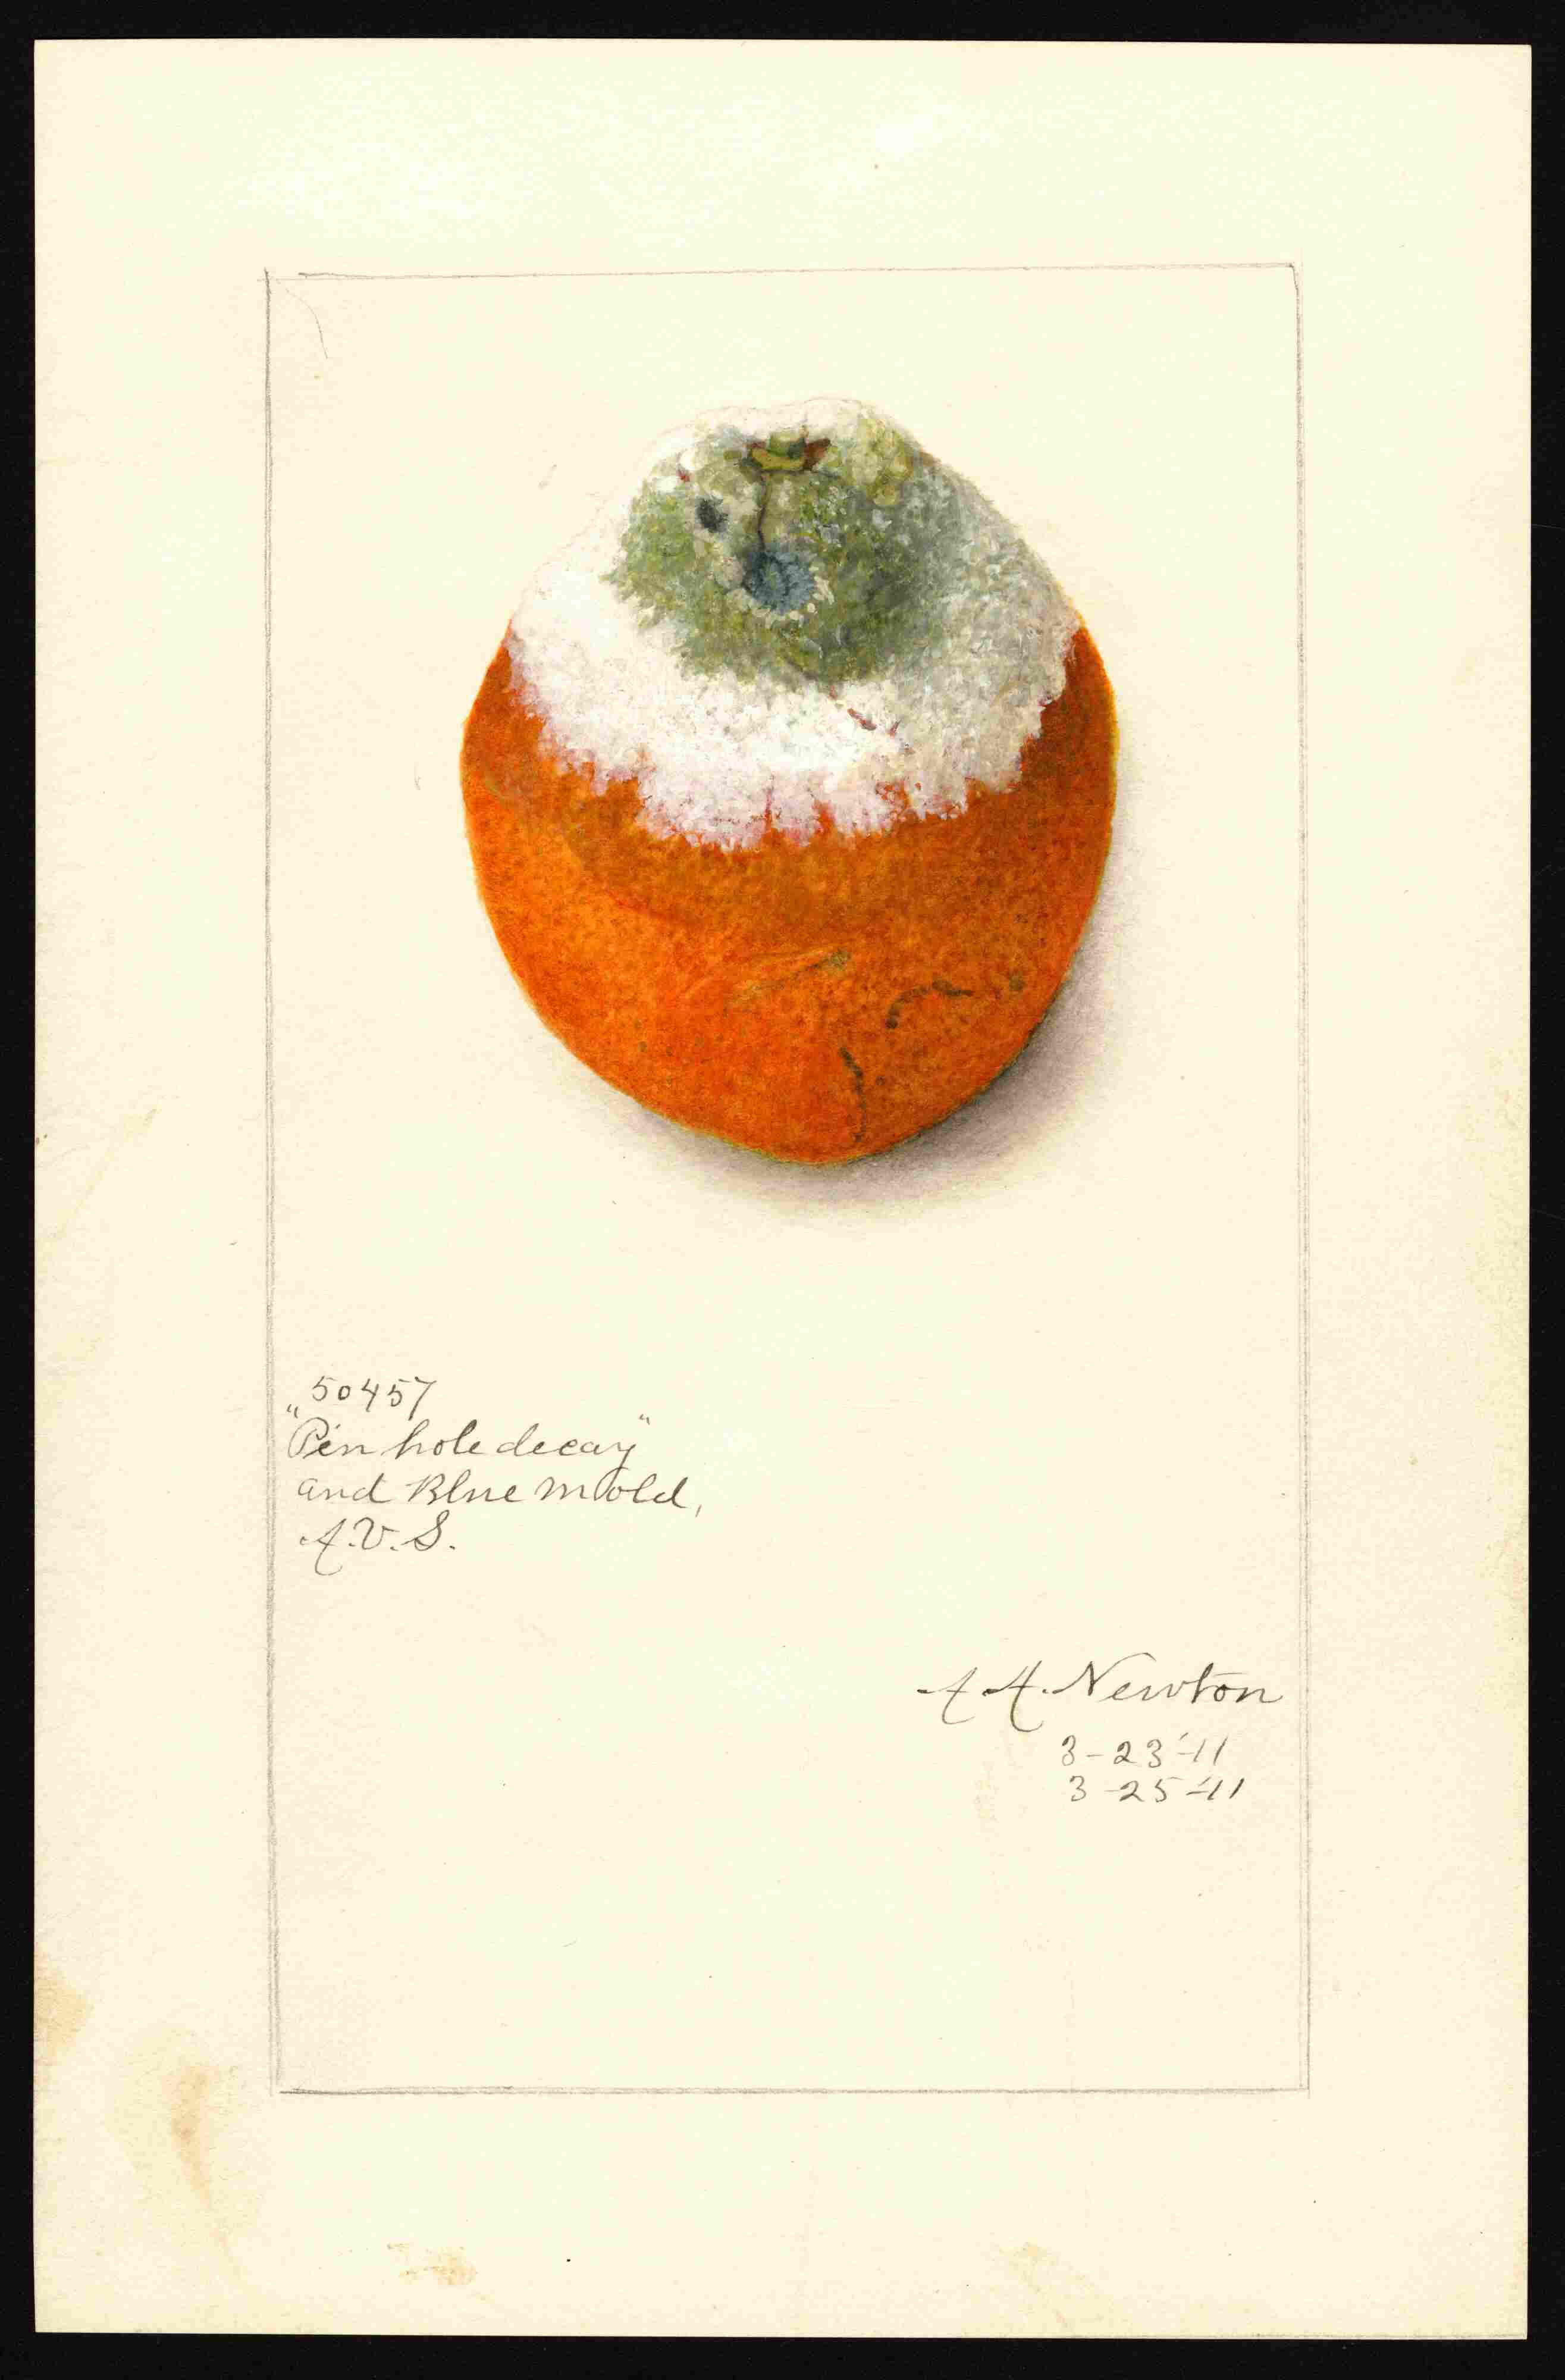 50457
"Pin hole decay"
and Blue mold,
A.V.S.
A A. Newton
3-23-'11
3-25-'11